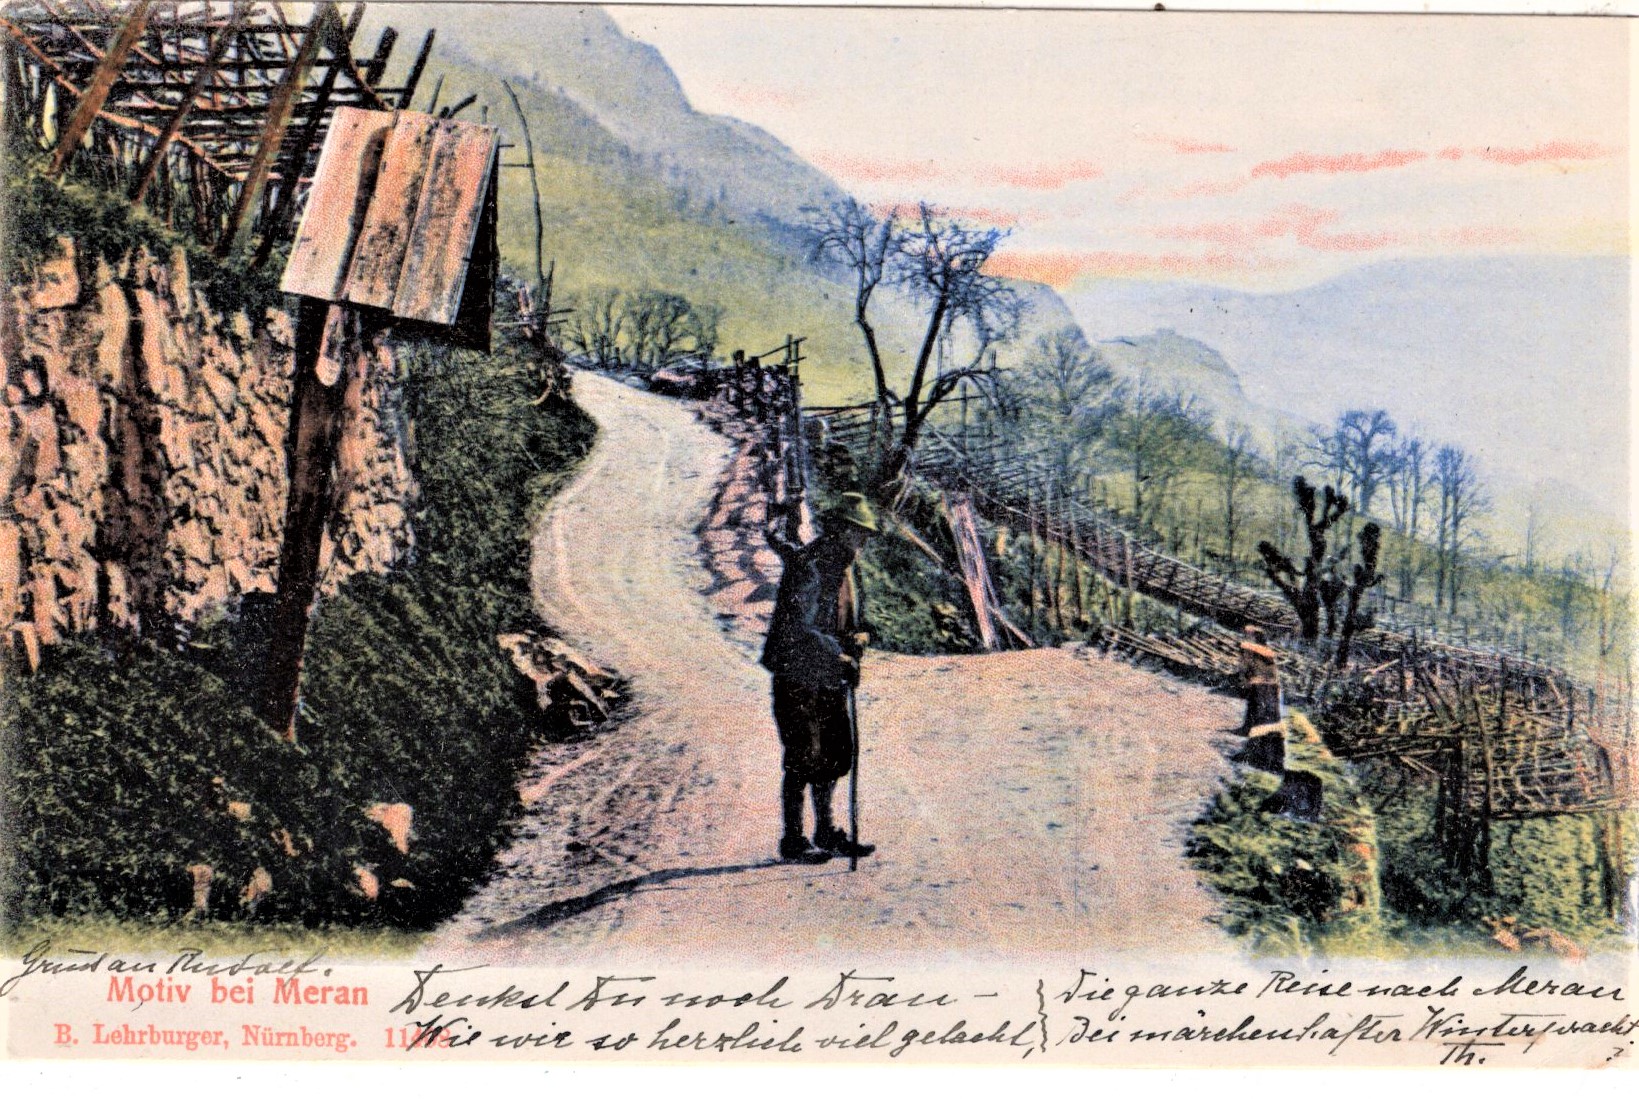 Gruss an Rudolf.
Motiv bei Meran
B. Lehrburger, Nürnberg.
Denkst Du noch Dran –
Wie wir so herzlich viel gelacht,
Die ganze Reise nach Meran
Bei märchenhafter Winterpracht.
?
Th.